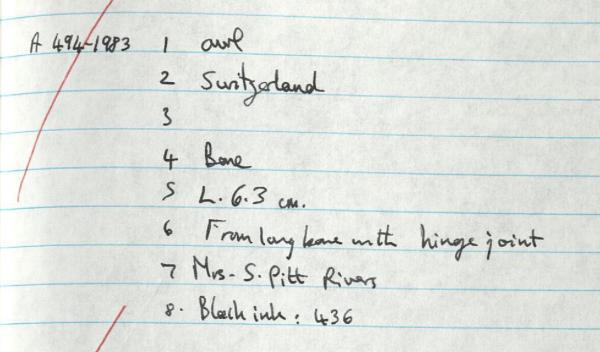 A 494-1983 1 awl
2 Switzerland
3
4 Bone
5 L. 6.3 cm.
6 From long bone with hinge joint
7 Mrs. S. Pitt Rivers
8. Black ink: 436